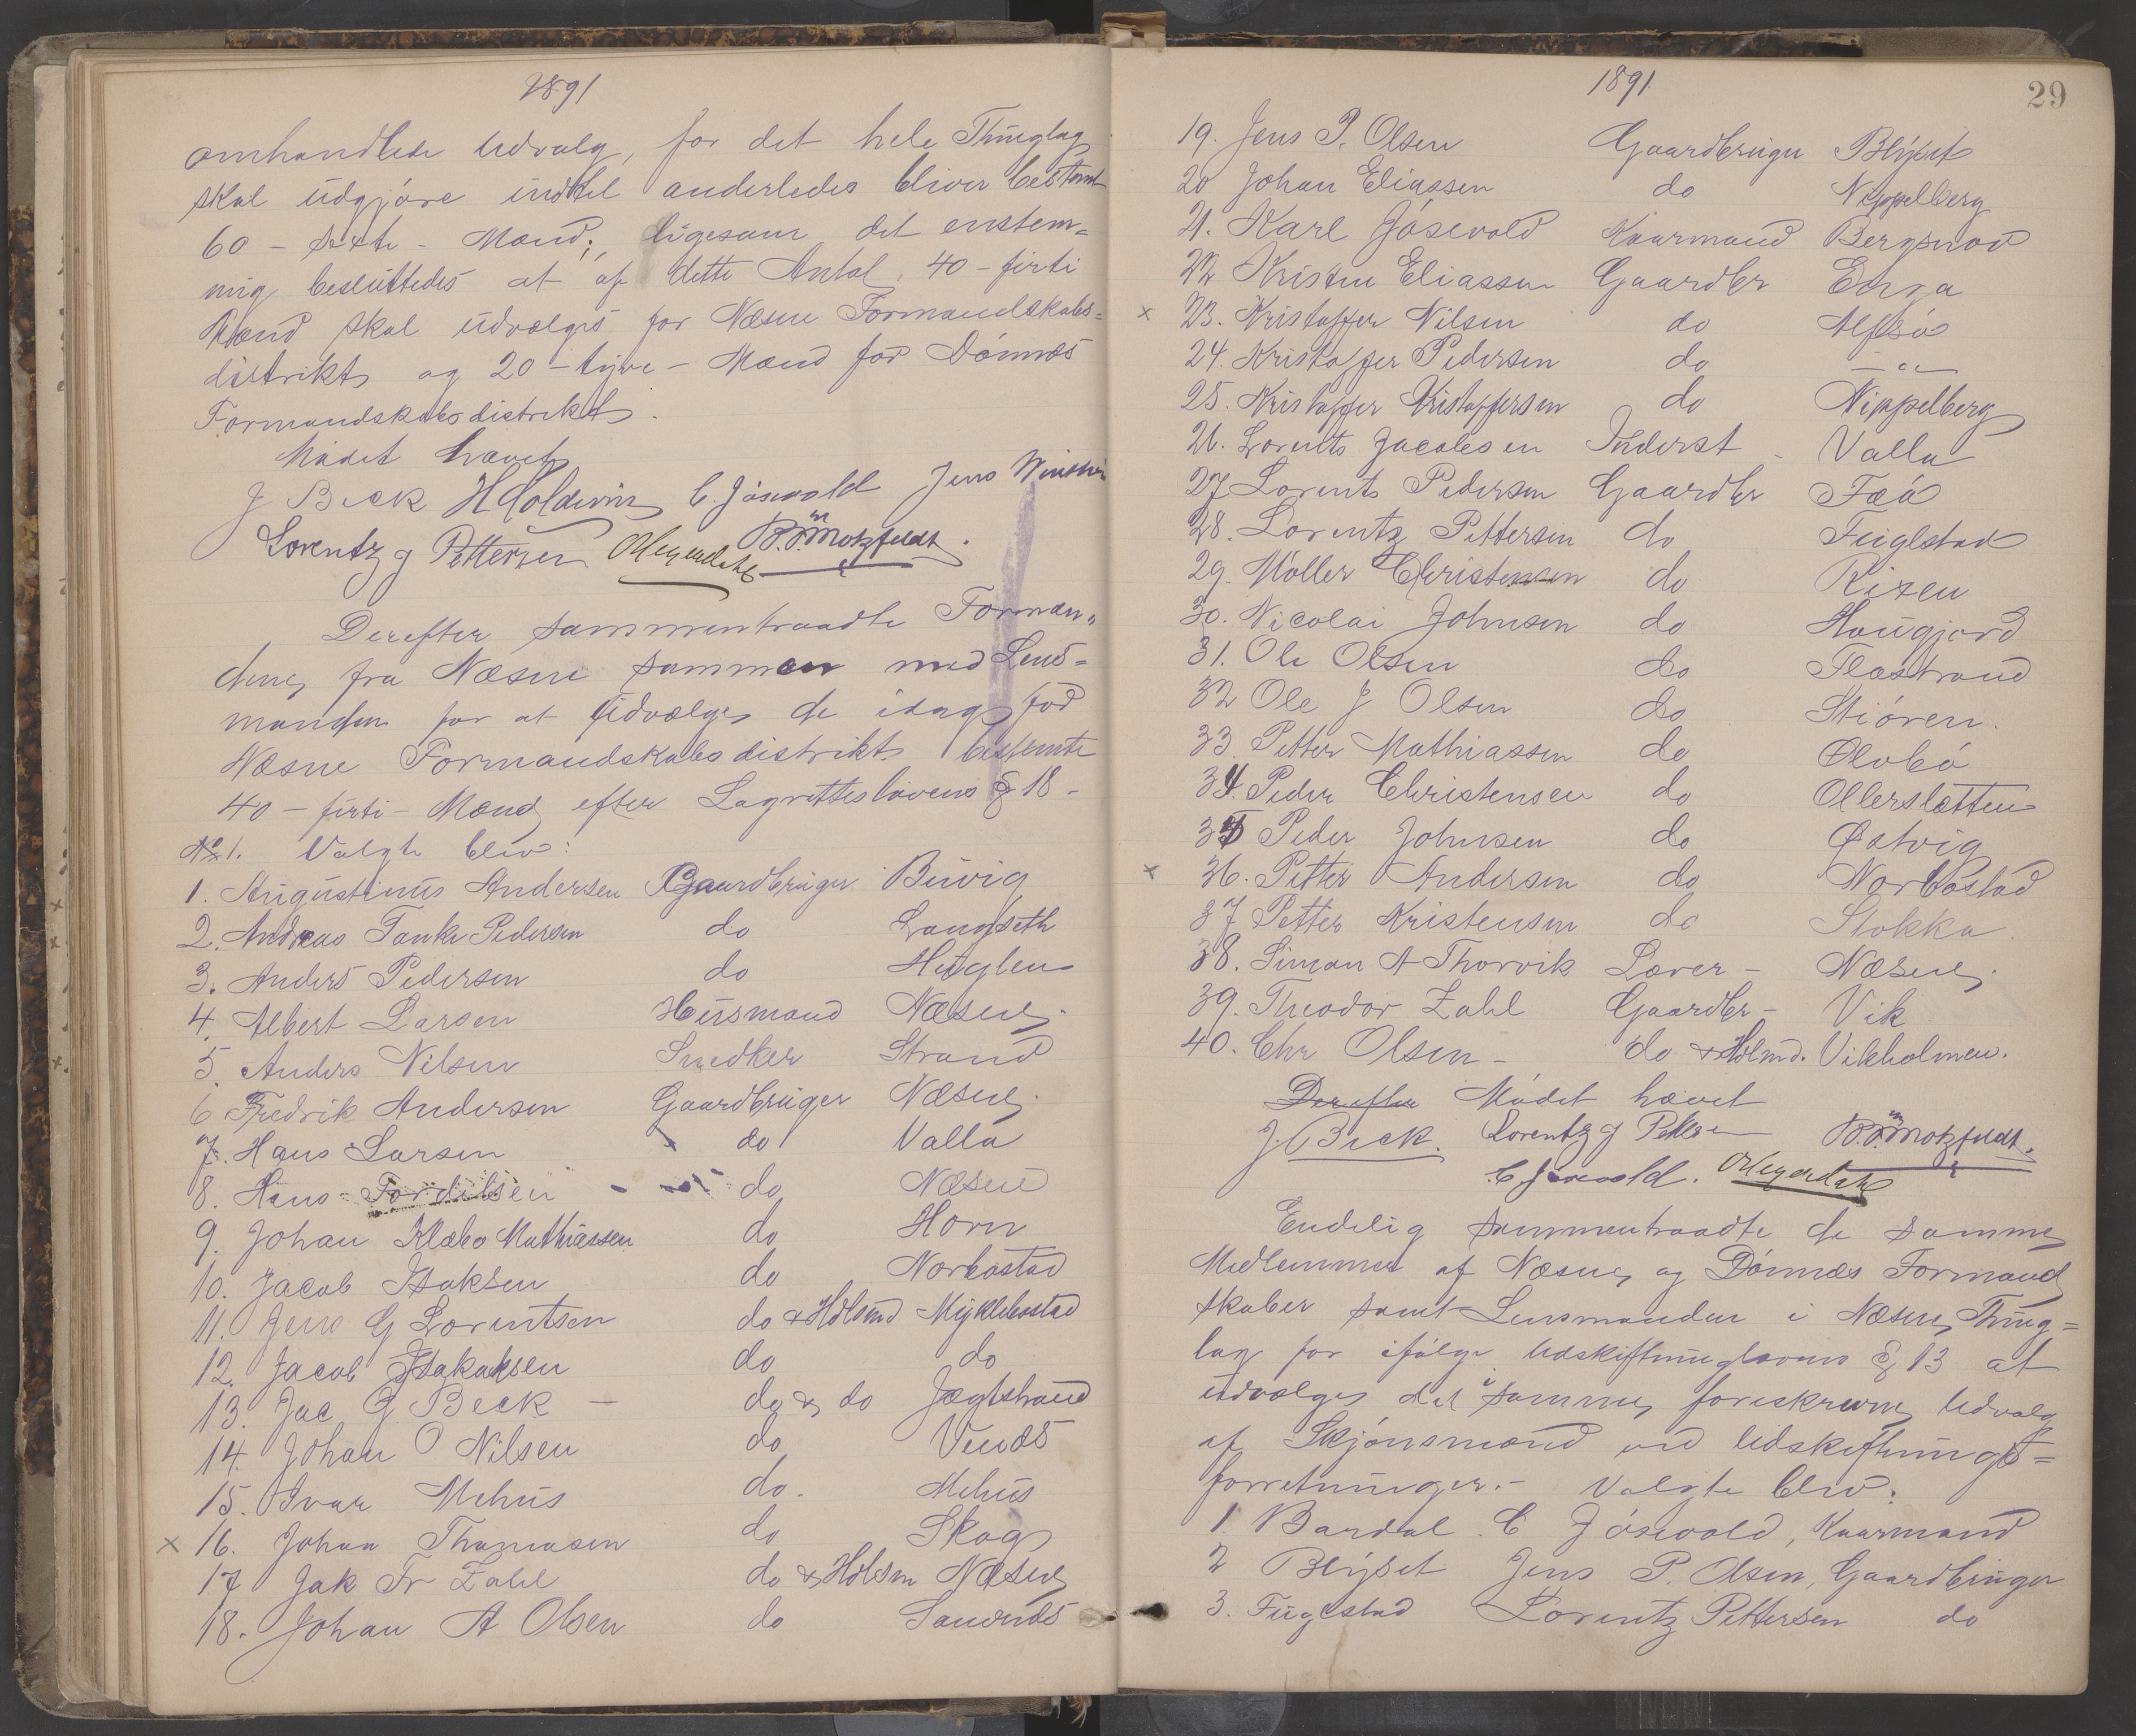 1891
omhandlede Udvalg, for det hele Thinglag
skal udgjøre indtil anderledes bliver bestemt
60 - sexti - Mænd; ligesom det enstem=
mig besluttedes at af dette Antal 40 - firti
Mænd skal udvælges for Næsne Formandskabs=
distrikt og 20 - tyve - Mænd for Dønnæs
Formandskabsdistrikt.
Mødet hævet
J Beck H Coldevin C. Jøsevold Jens
Lorentz J Pettersen B. Motzfeldt.
Derefter sammentraadte Formæn=
dene fra Næsne sammen med Lens=
manden for at udvælge de idag for
Næsne Formandskabsdistrikt bestemte
40 - firti - Mænd efter Lagretteslovens § 18 -
No 1. Valgte blev:
1. Augustinus Andersen Gaardbruger Buvig
2. Andreas Tanke Pedersen do Langseth
3. Anders Pedersen do Huglen
4. Albert Larsen Husmand Næsne.
5. Anders Nilsen Snedker Strand
6 Fredrik Andersen Gaardbruger Næsne.
7. Hans Larsen do Valla
8. Hans do Næsne
9. Johan Klæbo Mathiassen do Horn
10. Jacob Isaksen do Norbostad
11. Jens G Lorentsen do & Hdlsmd Myklebostad
12. Jacob Isakaksen do do
13. Jac G Beck - do & do Jægtstrand
14. Johan O Nilsen do Venæs
15. Ivar Mehus do. Mehus
x 16. Johan Thomasen do Skog
17 Jak Fr Zahl do & Hdlsm Næsne
18. Johan A Olsen do
1891
29
19. Jens P. Olsen Gaardbruger Blÿset
20 Johan Eliassen do Nippelberg
21. Karl Jøsevold Kaarmand
22 Kristen Eliassen Gaardbr Enga
x 23. Kristoffer Nilsen do Alfsø
24. Kristoffer Pedersen do - " -
25. Kristoffer Kristoffersen do Nippelberg
26. Lorents Jacobsen Inderst - Valla
27 Lorents Pedersen Gaardbr Fæø
28. Lorentz Pettersen do Fuglstad
29. Møller Christensen do
30. Nicolai Johnsen do Haugjord
31. Ole Olsen do Flostrand
32 Ole J Olsen do
33. Petter Mathiassen do
34. Peder Christensen do Ollerslætten
35 Peder Johnsen do Østvig
x 36. Petter Andersen do Norbostad
37 Petter Kristensen do Stokka
38. Simon A Thorvik Lærer - Næsne.
39. Theodor Zahl Gaardbr - Vik
40. Chr Olsen - do & Hdlmd. Vikholmen.
Derefter Mødet hævet
J. Beck. Lorentz J Pettersen B. Motzfeldt.
C Jøsevold.
Endelig sammentraadte de samme
Medlemmer af Næsne og Dønnæs Formand
skaber samt Lensmanden i Næsne Thing=
lag for ifølge Udskiftningslovens § 13 at
udvælge det samme foreskrevne Udvalg
af Skjønsmænd ved Udskiftnings=
forretninger. - Valgte blev:
1. Bardal C Jøsevold, Kaarmand
2 Blÿset Jens P. Olsen, Gaardbruger
3. Fuglestad Lorentz Pettersen do